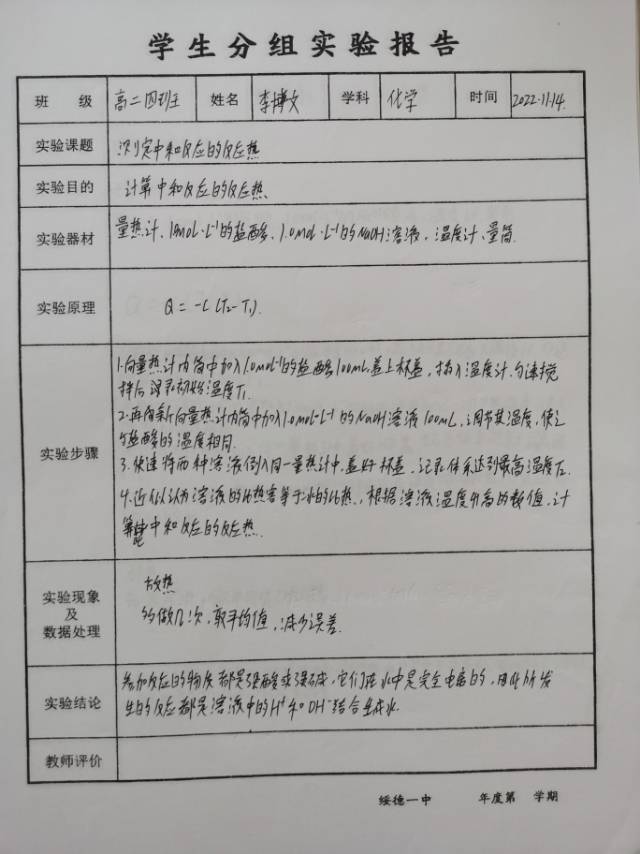 学生分组实验报告
班 级 高二四班 姓名 李博文 学科 化学 时间 2022.11.14.
实验课题 测定中和反应的反应热
实验目的 计算中和反应的反应热
实验器材 量热计、1.0mol·L⁻¹的盐酸、1.0mol·L⁻¹的NaOH溶液、温度计、量筒.
实验原理 Q=-C(T₂-T₁).
1.向量热计内筒中加入1.0mol⁻¹的盐酸100mL,盖上杯盖,插入温度计,匀速搅
拌后记录初始温度T₁.
2.再向 向量热计内筒中加入1.0mol·L⁻¹的NaOH溶液100mL,调节其温度,使之
与盐酸的温度相同.
实验步骤
3.快速将两种溶液倒入同一量热计中,盖好杯盖,记录体系达到最高温度T₂.
4.近似认为溶液的比热容等于水的比热,根据溶液温度升高的数值,计
算 中和反应的反应热.
实验现象
及
数据处理
放热
多做几次,取平均值,减少误差.
实验结论
参加反应的物质都是强酸或强碱,它们在水中是完全电离的,因此所发
生的反应都是溶液中的H⁺和OH⁻结合生成水.
教师评价
绥德一中 年度第 学期